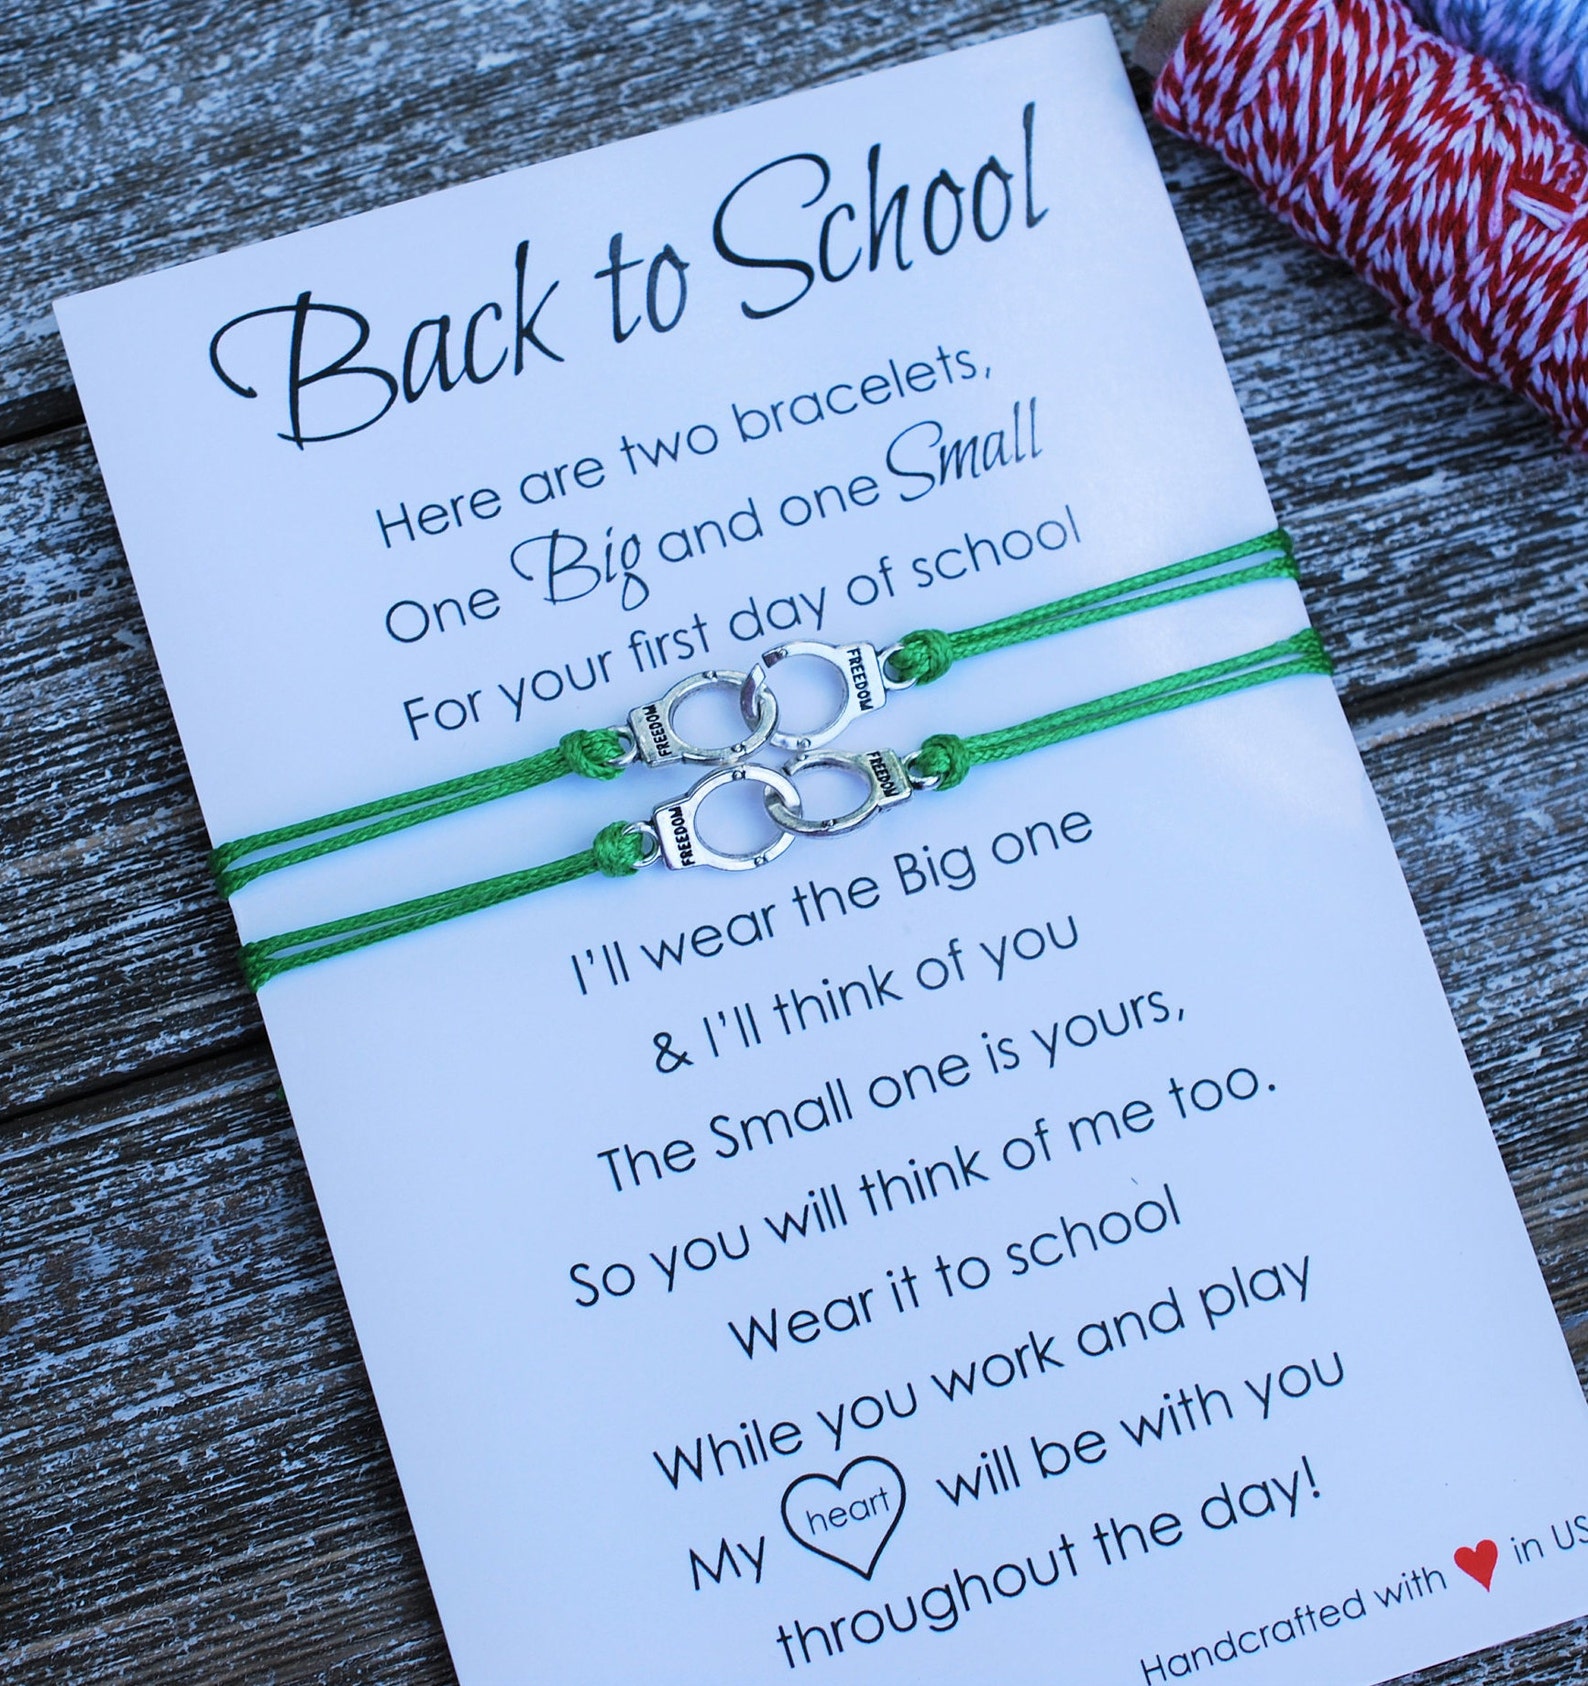 Back to School
Here are two bracelets,
One Big and one Small
For your first day of school
FREEDOM FREEDOM
FREEDOM FREEDOM
I'll wear the Big one
& I'll think of you
The Small one is yours,
So you will think of me too.
Wear it to school
While you work and play
My heart will be with you
throughout the day!
Handcrafted with ♥ in US